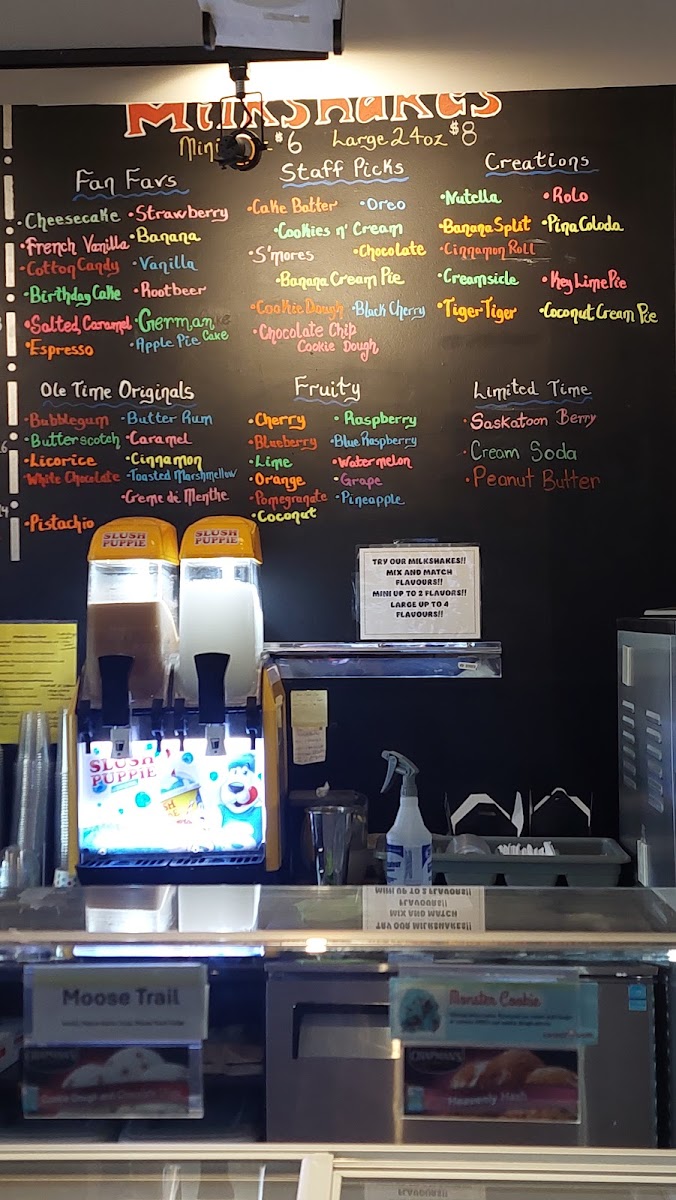 Milkshakes
Mini $6 Large 24oz $8
Fan Favs
• Cheesecake • Strawberry
• French Vanilla • Banana
• Cotton Candy • Vanilla
• Birthday Cake • Rootbeer
• Salted Caramel • German Cake
• Espresso • Apple Pie
Staff Picks
• Cake Batter • Oreo
• Cookies n' Cream
• S'mores • Chocolate
• Banana Cream Pie
• Cookie Dough • Black Cherry
• Chocolate Chip
Cookie Dough
Creations
• Nutella • Rolo
• Banana Split • Pina Colada
• Cinnamon Roll
• Creamsicle • Key Lime Pie
• Tiger Tiger • Coconut Cream Pie
Ole Time Originals
• Bubblegum • Butter Rum
• Butterscotch • Caramel
• Licorice • Cinnamon
• White Chocolate • Toasted Marshmellow
• Creme de Menthe
• Pistachio
Fruity
• Cherry • Raspberry
• Blueberry • Blue Raspberry
• Lime • Watermelon
• Orange • Grape
• Pomegranate • Pineapple
• Coconut
Limited Time
• Saskatoon Berry
• Cream Soda
• Peanut Butter
SLUSH
PUPPIE
SLUSH
PUPPIE
TRY OUR MILKSHAKES!!
MIX AND MATCH
FLAVOURS!!
MINI UP TO 2 FLAVORS!!
LARGE UP TO 4
FLAVOURS!!
SLUSH
PUPPIE
Moose Trail
CHAPMAN'S
Monster Cookie
CHAPMAN'S
Heavenly Hash